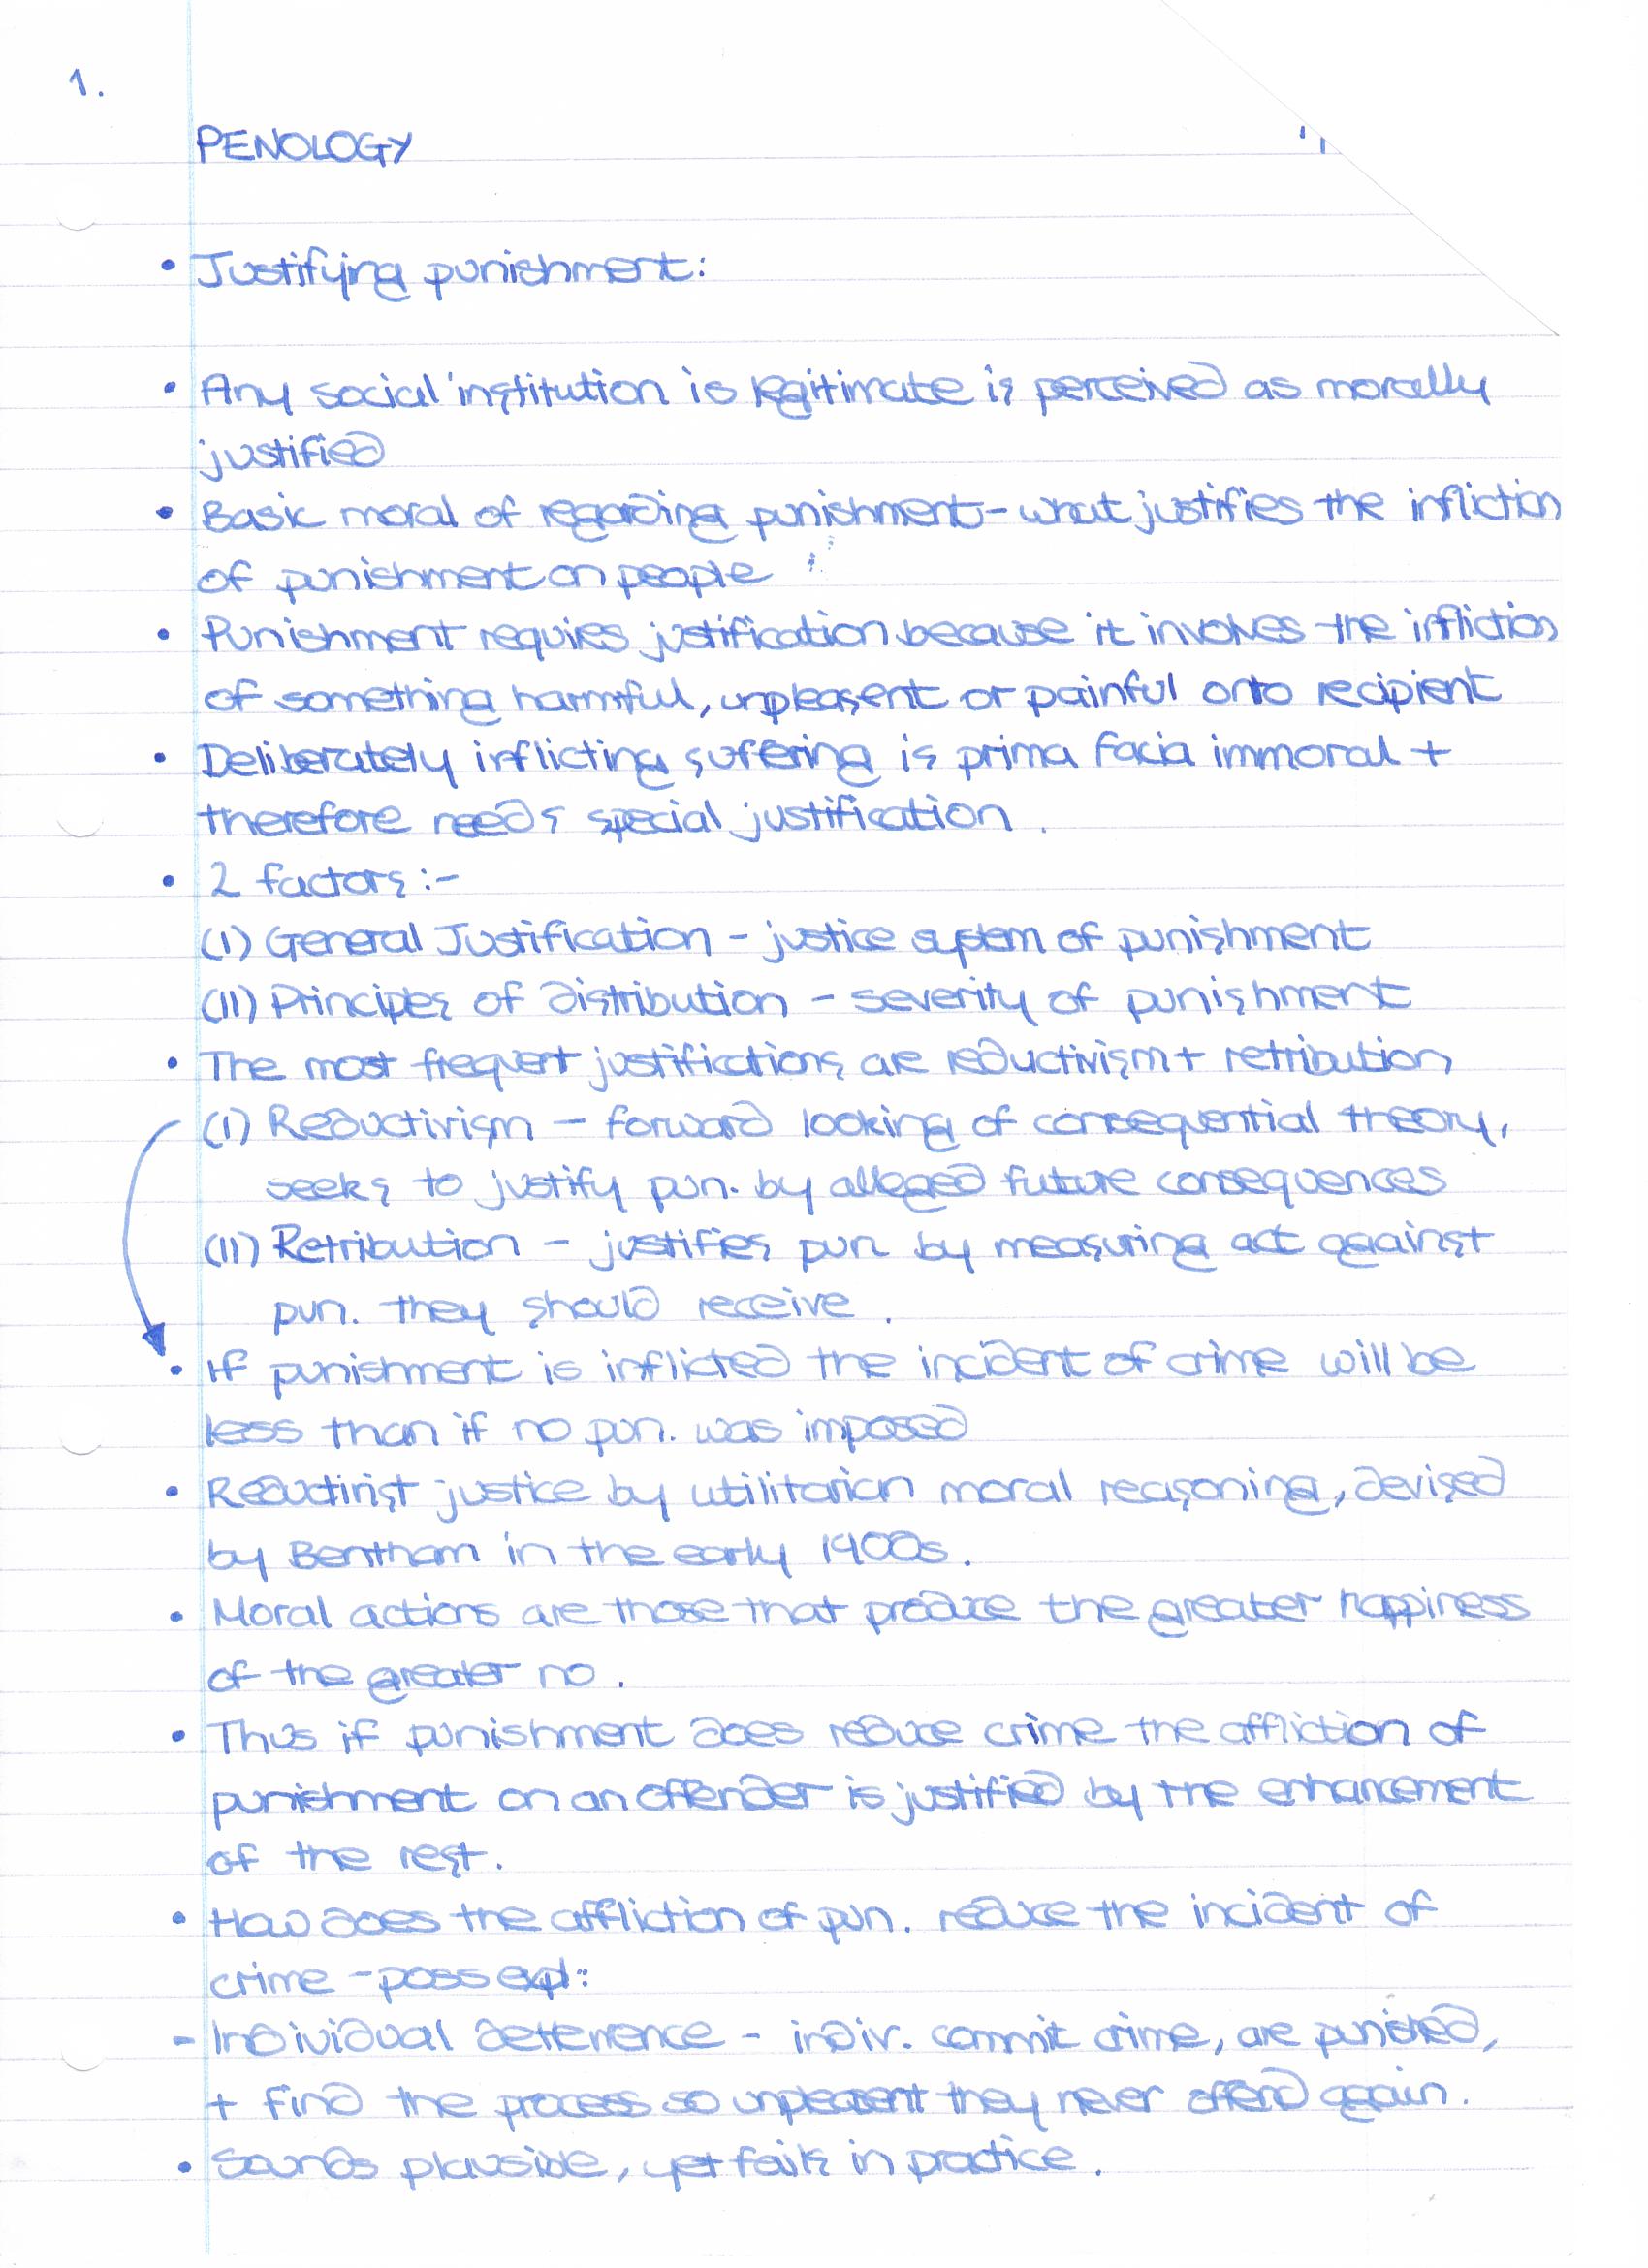 1.
PENOLOGY
• Justifying punishment:
• Any social institution is legitimate is perceived as morally
justified
• Basic moral of regarding punishment - what justifies the infliction
of punishment on people
• Punishment requires justification because it involves the infliction
of something harmful, unpleasent or painful onto recipient
• Deliberately inflicting suffering is prima facia immoral +
therefore needs special justification.
• 2 factors :-
(I) General Justification - justice system of punishment
(II) Principles of distribution - severity of punishment
• The most frequent justifications are reductivism + retribution
(I) Reductivism - forward looking of consequential theory,
seeks to justify pun. by alleged future consequences
(II) Retribution - justifies pun by measuring act against
pun. they should receive.
• If punishment is inflicted the incident of crime will be
less than if no pun. was imposed
• Reductivist justice by utilitarian moral reasoning, devised
by Bentham in the early 1900s.
• Moral actions are those that produce the greater happiness
of the greater no.
• Thus if punishment does reduce crime the affliction of
punishment on an offender is justified by the enhancement
of the rest.
• How does the affliction of pun. reduce the incident of
crime - poss expl:
- Individual detterrence - indiv. commit crime, are punished,
+ find the process so unpleasent they never offend again.
• Sounds plausible, yet fails in practice.